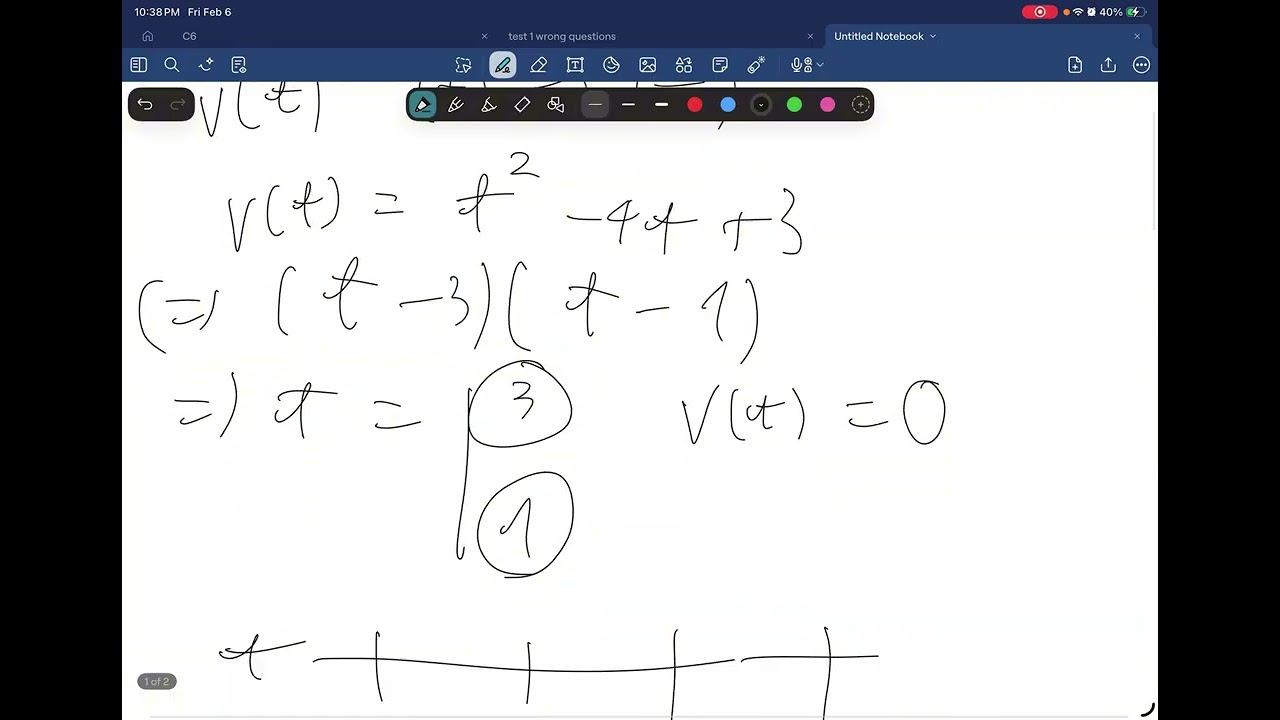 10:38 PM Fri Feb 6
40%
C6
test 1 wrong questions
Untitled Notebook
V(t)
V(t) = t² -4t +3
(=) (t -3)(t - 1)
=) t = 3 V(t) = 0
1
t
1 of 2